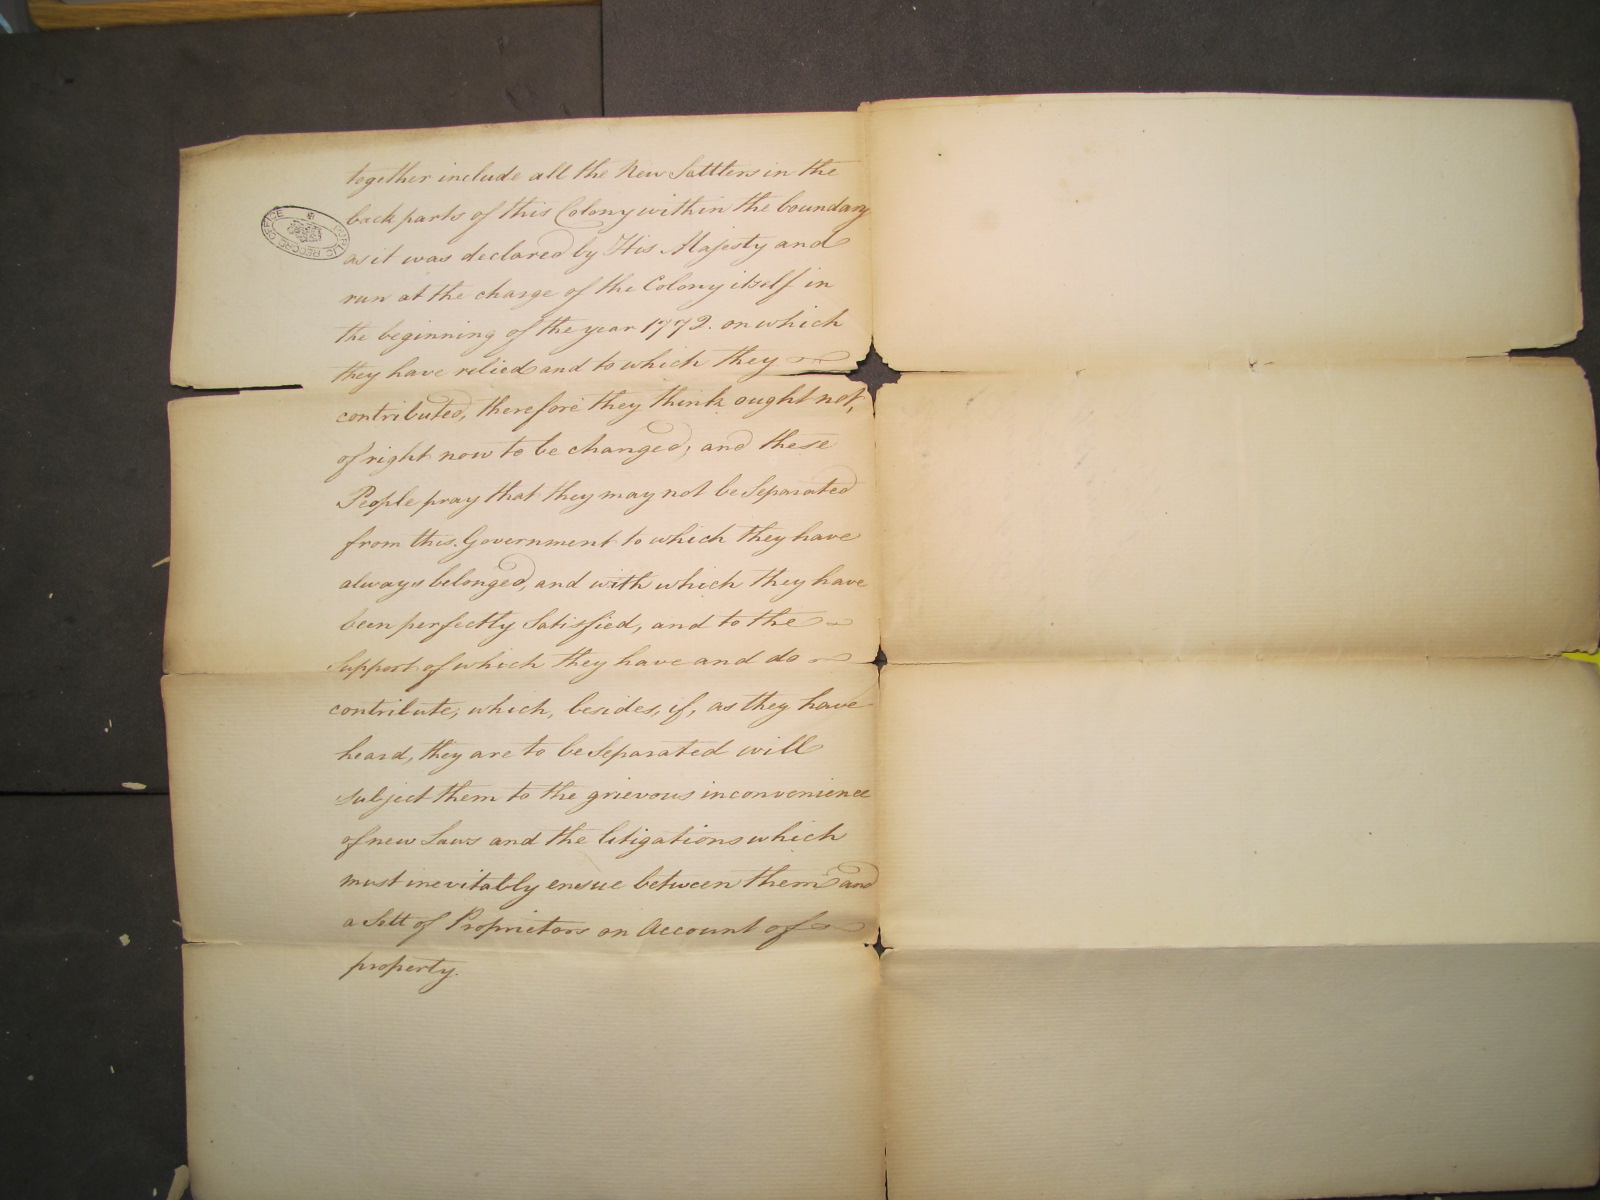 together include all the New Settlers in the
back parts of this Colony within the boundary
as it was declared by His Majesty and
run at the charge of the Colony itself in
the beginning of the year 1772. on which
they have relied and to which they
contributed, therefore they think ought not,
of right now to be changed; and these
People pray that they may not be Separated
from this Government to which they have
always belonged, and with which they have
been perfectly Satisfied, and to the
Support of which they have and do
contribute; which, besides, if, as they have
heard, they are to be Separated will
subject them to the grievous inconvenience
of new Laws and the litigations which
must inevitably ensue between them and
a Sett of Proprietors on Account of
property.
PUBLIC RECORD OFFICE